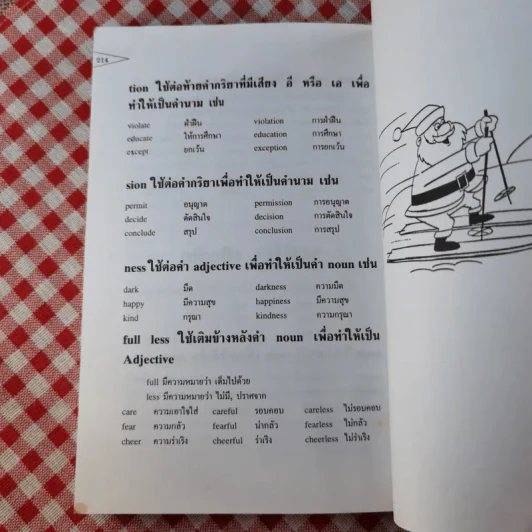 014
tion ใช้ต่อท้ายคำกริยาที่มีเสียง อี หรือ เอ เพื่อ
ทำให้เป็นคำนาม เช่น
violate ฝ่าฝืน violation การฝ่าฝืน
educate ให้การศึกษา education การศึกษา
except ยกเว้น exception การยกเว้น
sion ใช้ต่อคำกริยาเพื่อทำให้เป็นคำนาม เช่น
permit อนุญาต permission การอนุญาต
decide ตัดสินใจ decision การตัดสินใจ
conclude สรุป conclusion การสรุป
ness ใช้ต่อคำ adjective เพื่อทำให้เป็นคำ noun เช่น
dark มืด darkness ความมืด
happy มีความสุข happiness มีความสุข
kind กรุณา kindness ความกรุณา
full less ใช้เติมข้างหลังคำ noun เพื่อทำให้เป็น
Adjective
full มีความหมายว่า เต็มไปด้วย
less มีความหมายว่า ไม่มี, ปราศจาก
care ความเอาใจใส่ careful รอบคอบ careless ไม่รอบคอบ
fear ความกลัว fearful น่ากลัว fearless ไม่กลัว
cheer ความร่าเริง cheerful ร่าเริง cheerless ไม่ร่าเริง